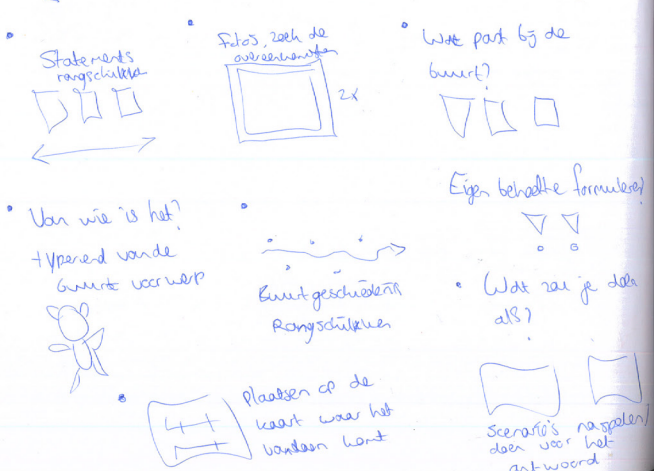 Statements
rangschikken
Foto's, zoek de
overeenkomsten
2x
Wat past bij de
buurt?
Van wie is het?
typerend van de
buurt voorwerp
Buurtgeschiedenis
Rangschikken
Eigen behoefte formuleren?
Wat zou je doen
als?
plaatsen op de
kaart waar het
vandaan komt
Scenario's naspelen/
doen voor het
antwoord